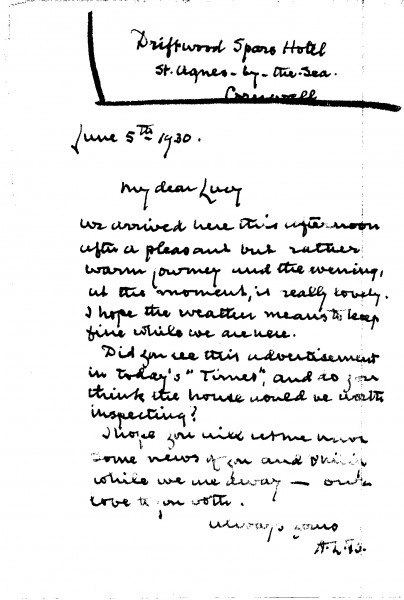 Driftwood Spars Hotel
St. Agnes-by-the-Sea.
Cornwall
June 5th 1930.
My dear Lucy
We arrived here this afternoon
after a pleasant but rather
warm journey and the evening,
at this moment, is really lovely.
I hope the weather means to keep
fine while we are here.
Did you see this advertisement
in today's "Times", and do you
think the house would be worth
inspecting?
I hope you will let me have
some news of you and
while we are away — our
love to you both.
Always yours